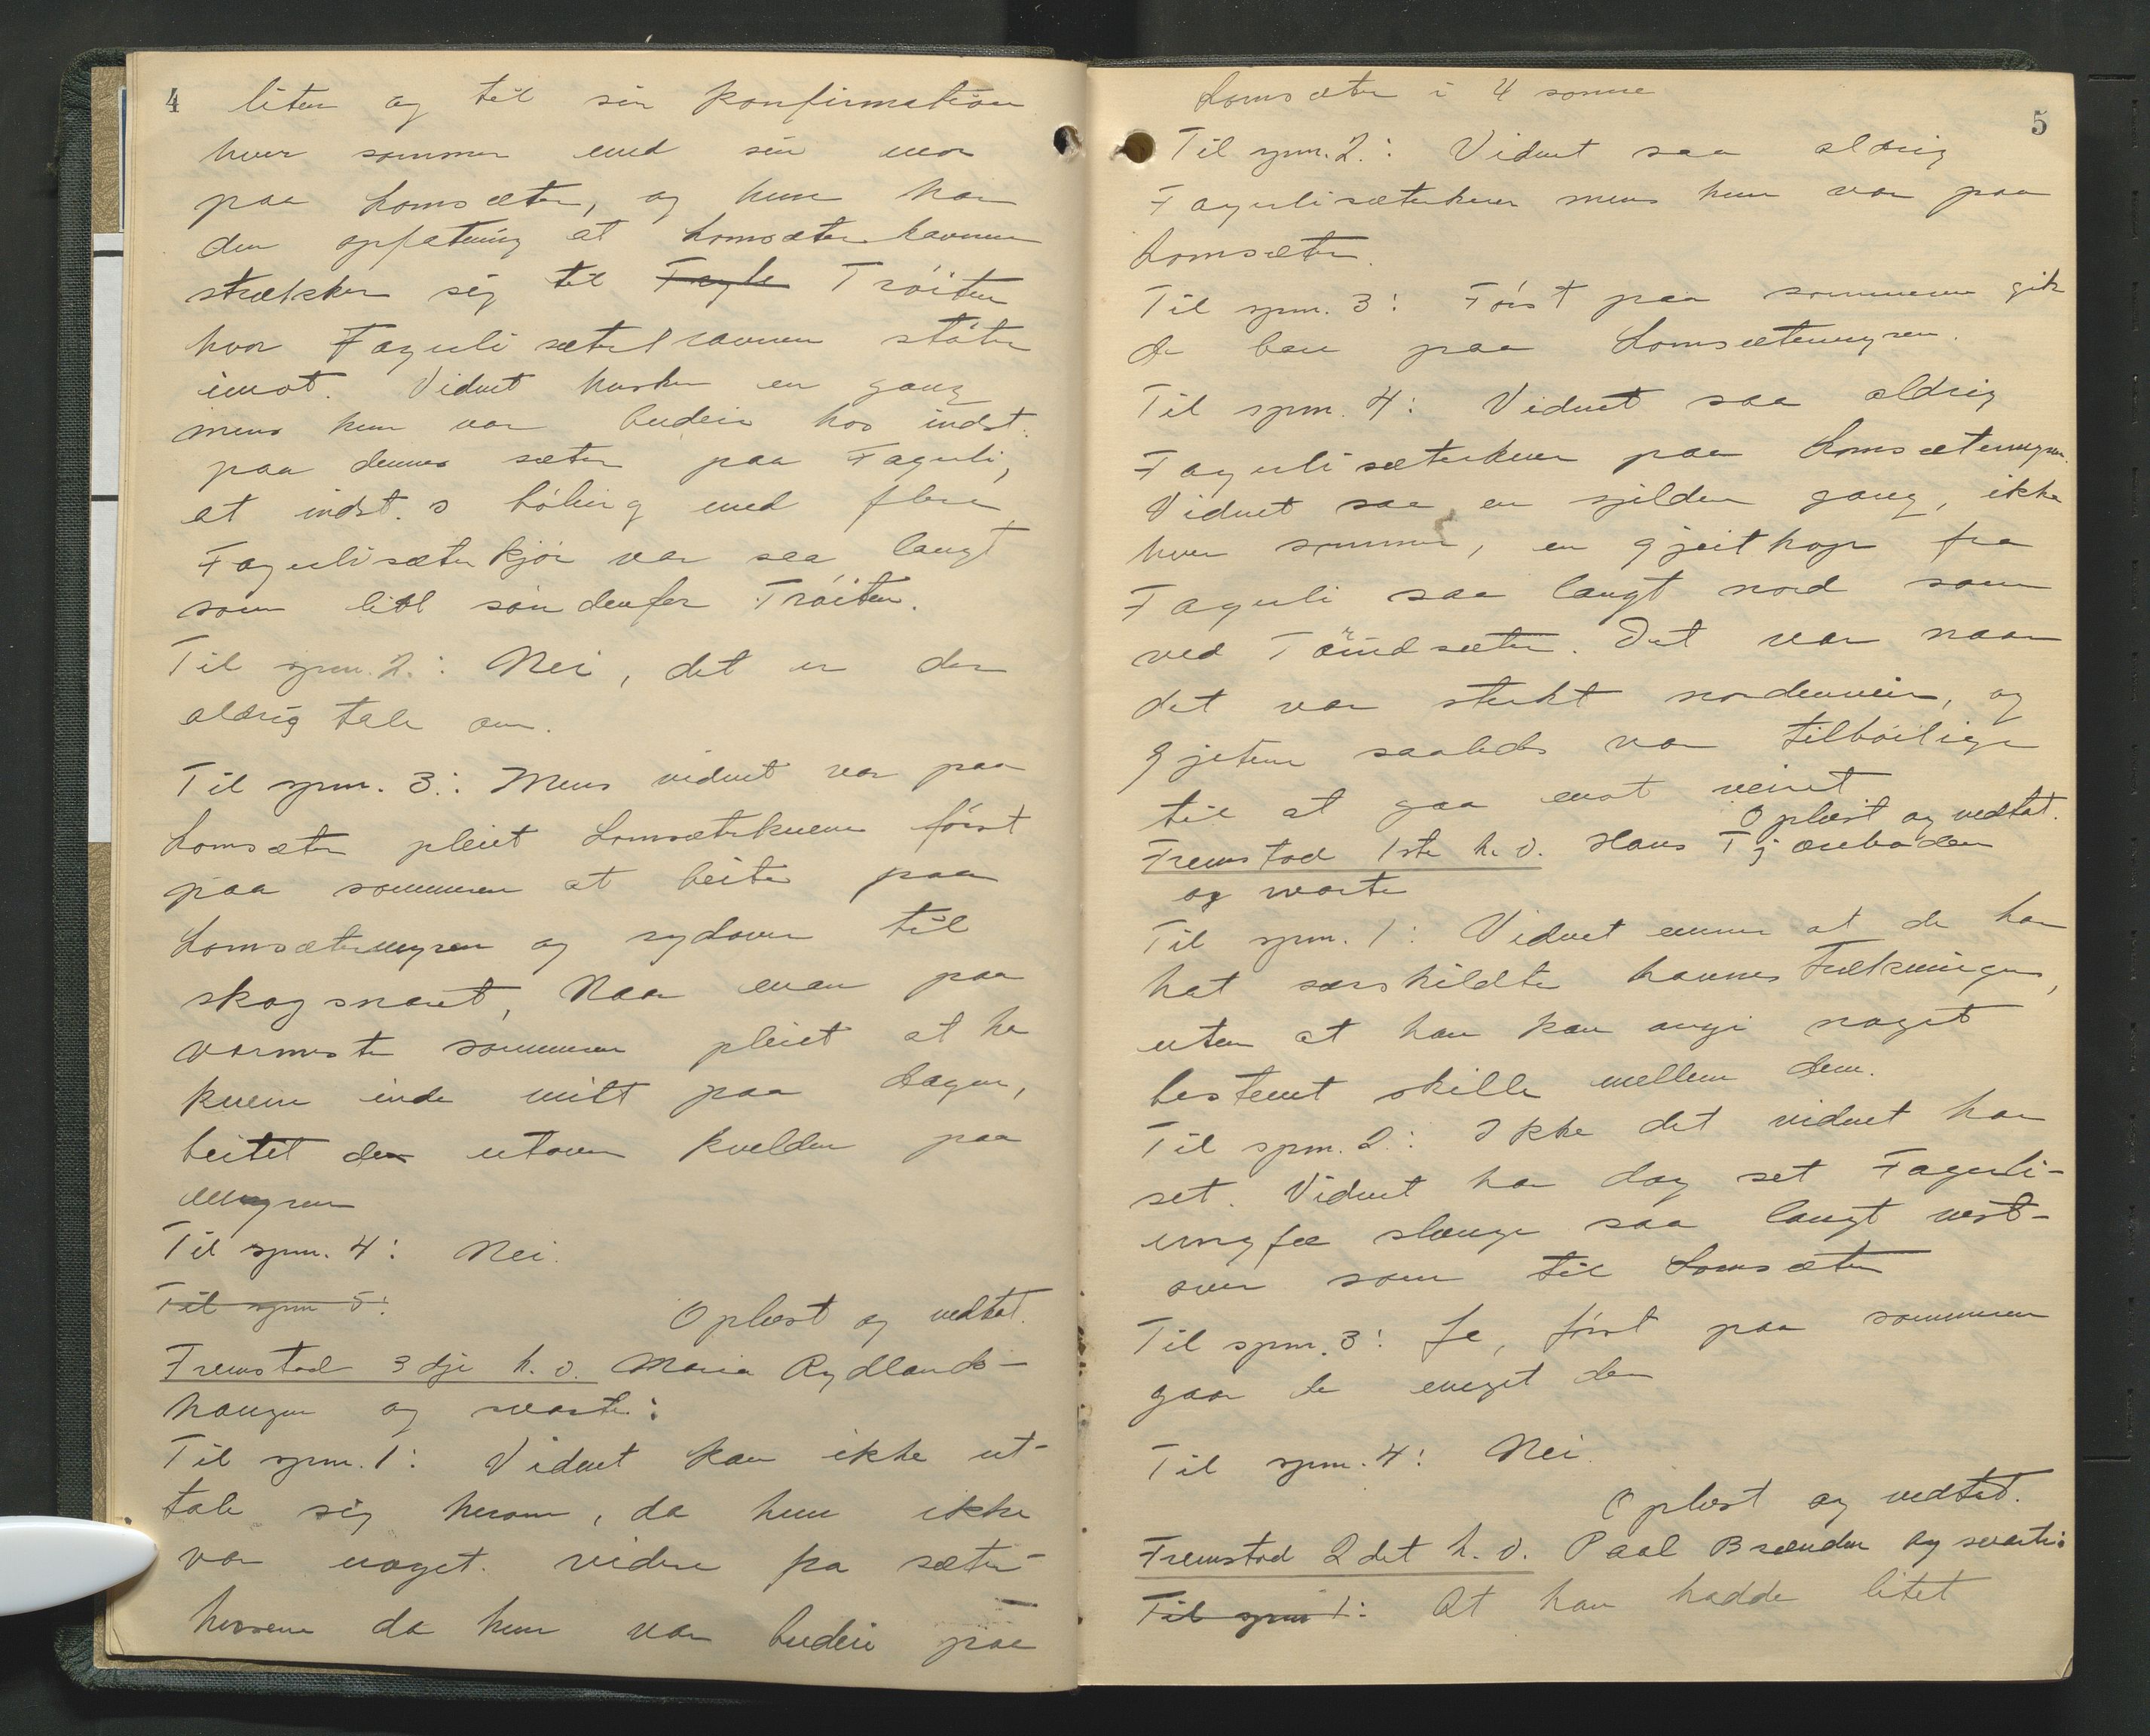 4
liten og til sin konfirmation
hver sommer med sin mor
paa Lomsæter, og hun har
den opfatning at Lomsæterhavnen
strækker sig til Fagle Tröiten
hvor Fagerlisæterhavnen stöter
imot. Vidnet husker en gang
mens hun var budeie hos indst.
paa dennes sæter paa Fagerli,
at indst.s böling med flere
Fagerlisæterkjör var saa langt
som litt söndenfor Tröiten.
Til spm. 2.: Nei, det er der
aldrig tale om.
Til spm. 3.: Mens vidnet var paa
Lomsæter pleiet Lomsæterkuene först
paa sommeren at beite paa
Lomsætermyren og sydover til
skogsnaret, Naar man paa
varmeste sommeren pleiet at ha
kuene inde mitt paa dagen,
beitet de utover kvelden paa
myren
Til spm. 4: Nei.
Til spm 5:
Oplæst og vedtat.
Fremstod 3dje h.v. Maria Rydlands-
haugen og svarte:
Til spm. 1: Vidnet kan ikke ut-
tale sig herom, da hun ikke
var noget videre fra sæter-
husene da hun var budeie paa
5
Lomsæter i 4 somre
Til spm. 2.: Vidnet saa aldrig
Fagerlisæterkuer mens hun var paa
Lomsæter.
Til spm. 3: Först paa sommeren gik
de bare paa Lomsætermyren.
Til spm. 4: Vidnet saa aldrig
Fagerlisæterkuer paa Lomsætermyren.
Vidnet saa en sjelden gang, ikke
hver sommer, en gjeithop fra
Fagerli saa langt nord som
ved Töindsæter. Det var naar
det var sterkt nordenveir, og
gjetene saaledes var tilböilige
til at gaa mot veiret
Oplæst og vedtat.
Fremstod 1ste h.v. Hans Tjærebaden
og svarte
Til spm. 1: Vidnet mener at de har
hat særskildte havnestrækninger,
uten at han kan angi noget
bestemt skille mellem dem.
Til spm. 2: Ikke det vidnet har
set. Vidnet har dog set Fagerli-
ungfæ slænge saa langt vest-
over som til Lomsæter
Til spm. 3: Ja, först paa sommeren
gaar de meget der
Til spm. 4: Nei.
Oplæst og vedtat.
Fremstod 2det h.v. Paal Brænden og svarte:
Til spm 1: At han hadde litet